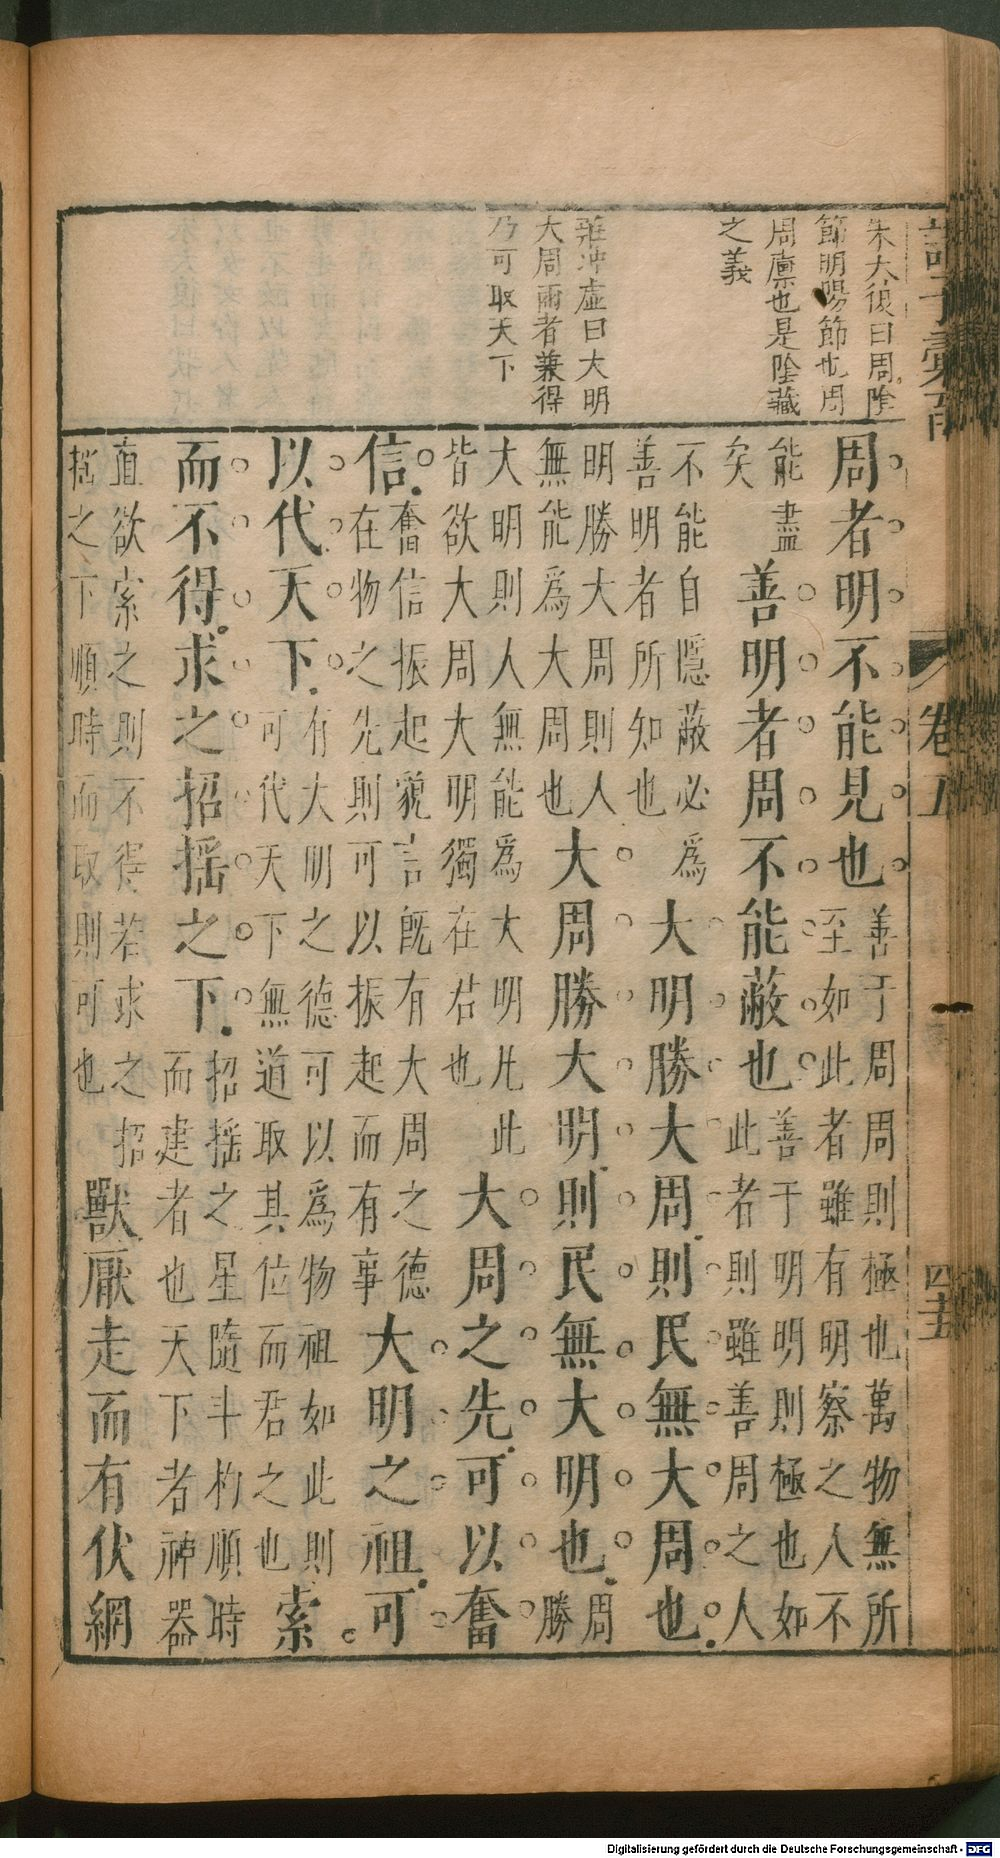 諸子彙函
卷五
四五
朱大復曰周陰
節明陽節也周
周廩也是陰藏
之義
莊冲虛曰大明
大周兩者兼得
乃可取天下
周者明不能見也善于周周則極也萬物無所至如此者雖有明察之人不
能盡矣善明者周不能蔽也善于明明則極也如此者則雖善周之人
不能自隱蔽必為善明者所知也大明勝大周則民無大周也
明勝大周則人無能為大周也大周勝大明則民無大明也周勝
大明則人無能為大明凡此皆欲大周大明獨在君也大周之先可以奮
信奮信振起貌言既有大周之德在物之先則可以振起而有事大明之祖可
以代天下有大明之德可以為物祖如此則可代天下無道取其位而君之也索
而不得求之招搖之下招搖之星隨斗杓順時而建者也天下者神器
直欲索之則不得若求之招搖之下順時而取則可也獸厭走而有伏網
Digitalisierung gefördert durch die Deutsche Forschungsgemeinschaft - DFG